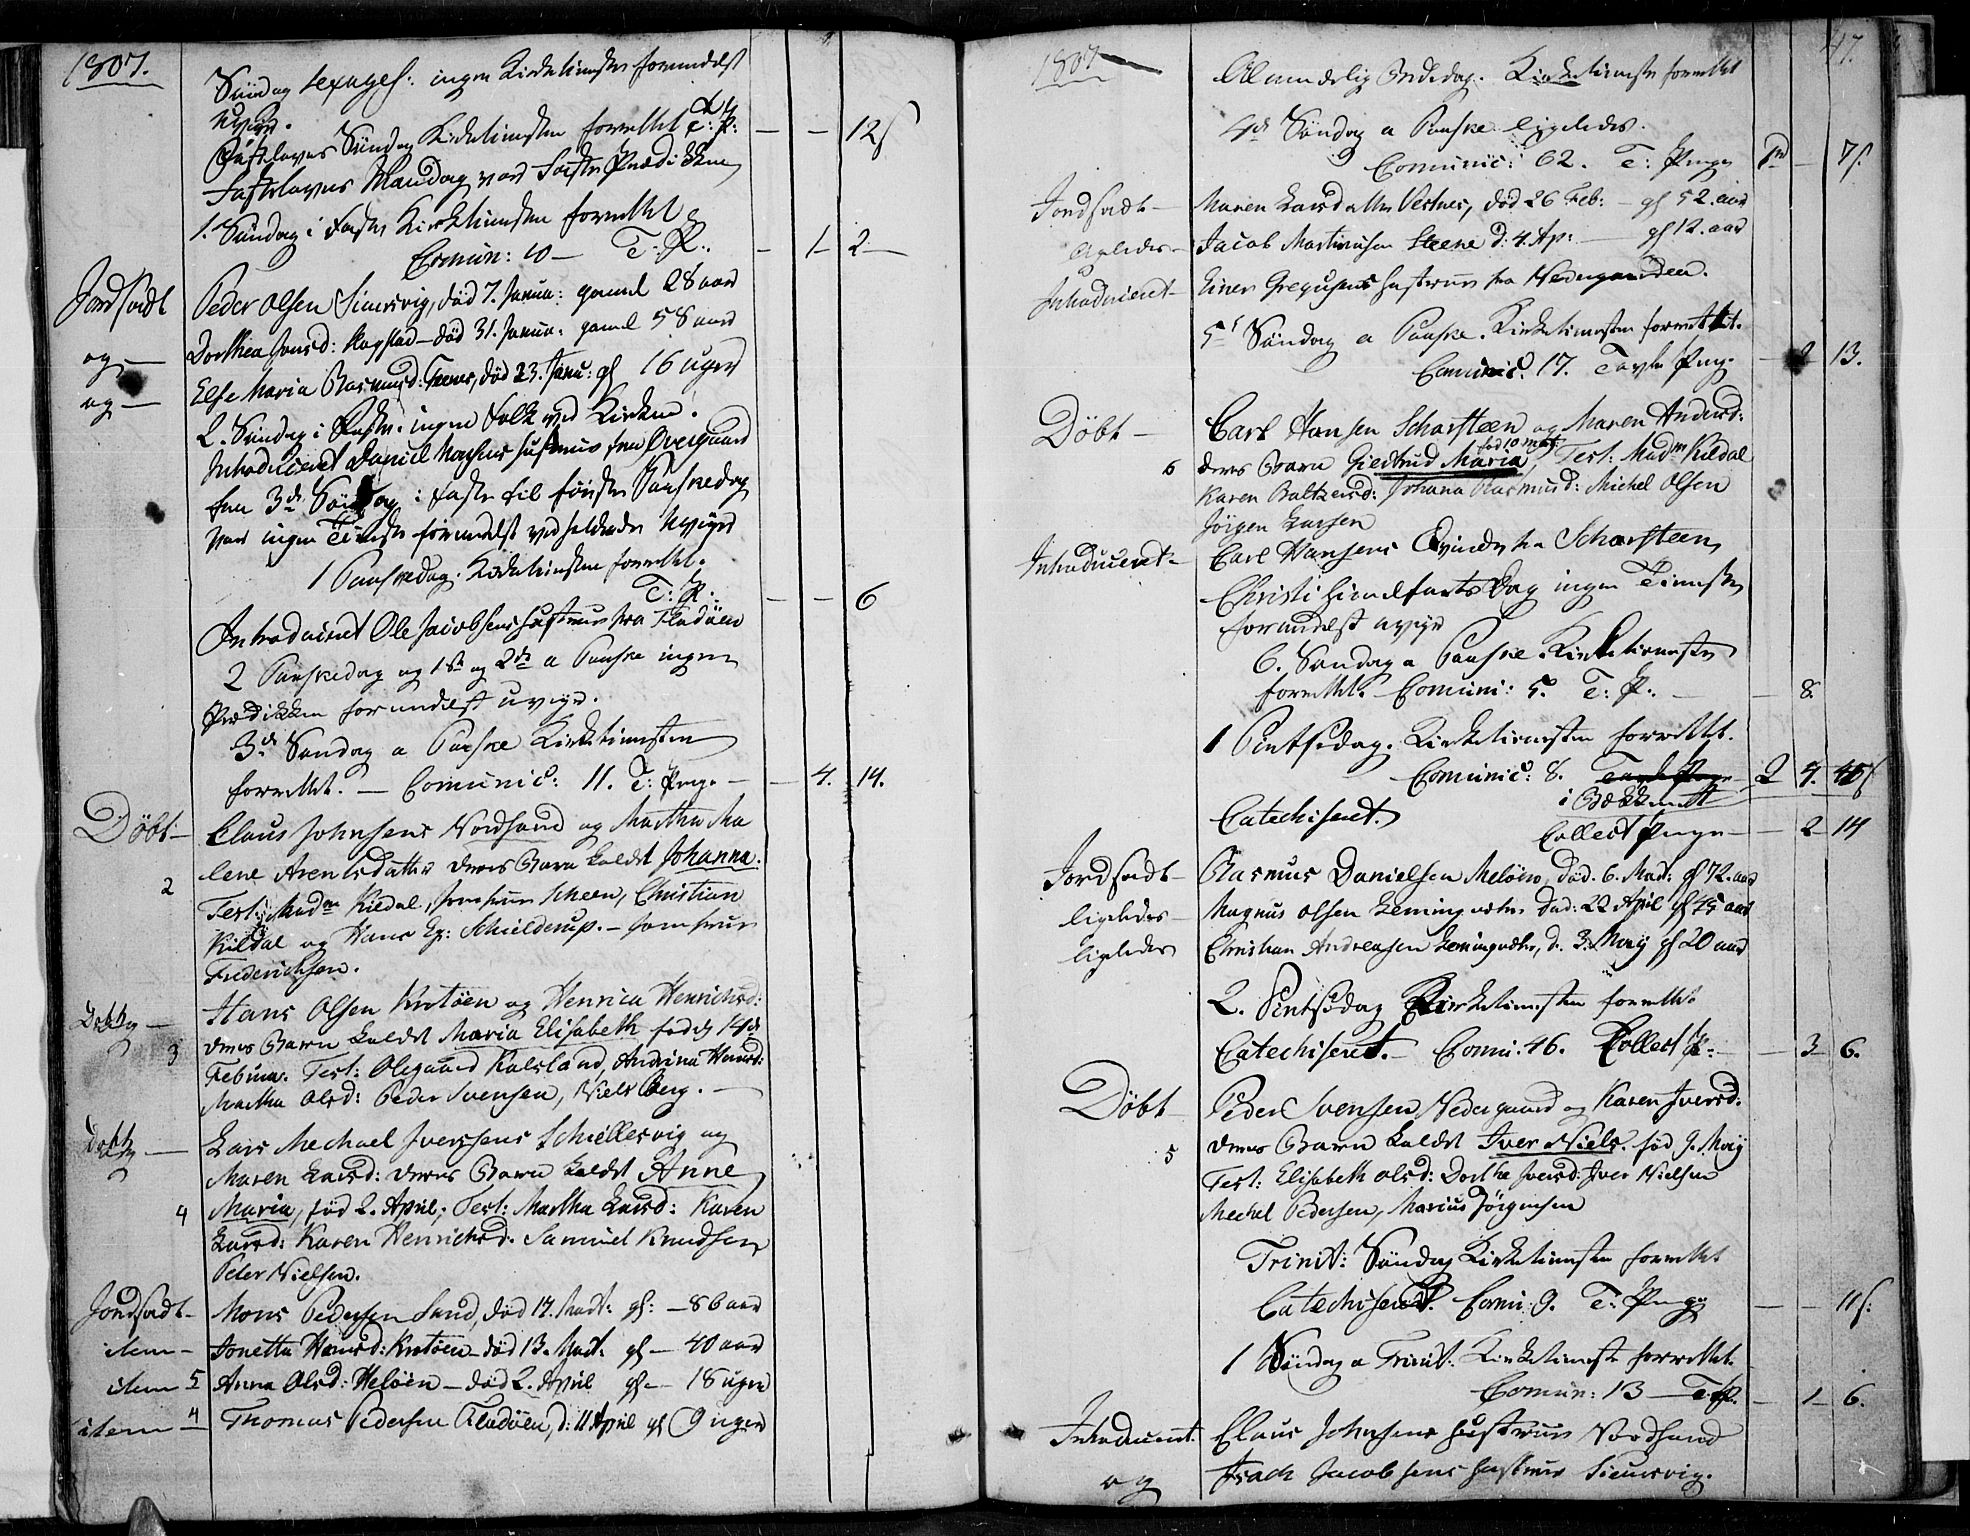 1807.
Søndag sexages: ingen Kirketienste formedelst
Uveyr.
Fastelavns Søndag Kirketiensten forrettet T: P: — — 12 s
Fastelavns Mandag var første Prædikken
1. Søndag i Faste Kirketiensten forrettet
Comun: 10 — T: P: — 1 — 2 —
Jordfæstet Peder Olsen Simesvig, død 7. Janua: gamel 28 aar
og — Dorthea Jonsd: Kogstad — død 31. Janua: gamel 58 aar
og — Else Maria Rasmusd: Teenes, død 23. Janu: gl 16 uger
2. Søndag i Faste ingen Folk ved Kirken.
Introduceret Daniel Hustrue fra Overgaard
fra 3de Søndag i Faste til første Paaskedag
var ingen Tieneste formedelst vedholdende Uveyr
1 Paaskedag. Kirketiensten forrettet.
T: P: — — 6
Introduceret Ole Jacobsens Hustrue fra Fladøen
2 Paaskedag og 1ste og 2de a Paaske ingen
Prædikken formedelst uveyr.
3de Søndag a Paaske Kirketiensten
forrettet. — Comunic: 11. T: Penge — — 4. 14.
Døbt — Claus Johnsens Nordsand og Martha Ma
lene Arentsdatter deres Barn kaldet Johanna.
2 Test: Madm Kildal, Jomfrue Scheen, Christian
Kildal og Hans Eg: Schielderup. — Jomfrue
Friderichsen.
Døbt — Hans Olsen Krotøen og Henrica Henrichsd:
deres Barn kaldet Maria Elisabeth fød d 14de
3 Februar. Test: Olegaard Kalsland, Andrina Hansd:
Martha Olsd: Peder Svensen, Niels Berg. —
Døbt — Lars Mechael Iversens Schiellesvig og
Maren Larsd: deres Barn kaldet Anne
4 Maria, fød 2. April; Test: Martha Larsd: Karen
Larsd: Karen Henrichsd: Samuel Knudsen
Peter Nielsen.
Jordfæstet — Mons Pedersen Sand, død 17. Mart: gl: — 86 aar
item — Jonetta Hansd: Krotøen — død 13. Mart: gl — 40 aar
item 5 Anna Olsd: Heløen — død 2. April gl — 18 uger
item 4 Thomas Pedersen Fladøen, d: 11 April gl 9 uger
47.
1807
Almindelig Bededag. Kirketienste forrettet
4de Søndag a Paaske ligeledes.
Comunic: 62. T: Penge — 7 s.
Jordfæstet — Maren Larsdatter Vestnes, død 26 Feb: — gl 52. aar
ligeledes — Jacob Martinusen Steene d: 4. Ap: — gl 12. aar
Introduceret — Einer Gregusens Hustrue fra Nedergaarden.
5te Søndag a Paaske. Kirketiensten forrettet.
Comunic: 17. Tavle Peng. — 2 13.
Døbt — Carl Hansen Scharsteen og Maren Andersd:
6 deres Barn Giertrud Maria, fød 10 Mart: Test: Madm Kildal
Karen Baltzersd: Johana Rasmusd: Michel Olsen
Jørgen Larsen
Introduceret — Carl Hansens Qvinde fra Scharsteen
Christi Himelfarts Dag ingen Tieneste
formedelst uveyr
6. Søndag a Paaske. Kirketienesten
forrettet. Comuni: 5. T: P: — — 8
1 Pintsedag. Kirketienesten forrettet.
Comunic: 8. Tavle Penge 2 4.
i Bækkenet
Catechiseret. Collect Penge — — 2 14
Jordfæstet — Rasmus Danielsen Meløen, død. 6. Mart: gl 72. aar
ligeledes — Magnus Olsen død: 22 April gl 45 aar
ligeledes Christian Andreasen d. 3. Maij gl 20 aar
2. Pintsedag Kirketienesten forrettet.
Catechiseret. — Comu: 46. Collect P: — — 3 6.
Døbt Peder Svensen Nedergaard og Karen Iversd:
5 deres Barn kaldet Iver Niels. fød 9. Maij
Test: Elisabeth Olsd: Dorthe Iversd: Iver Nielsen
Mechel Pedersen, Marius Jörgensen
Trinit: Søndag Kirketienesten forrettet
Catechiseret. Comu: 9. T: Penge — — 11 s.
1 Søndag a Trinit: Kirketieneste forrettet.
Comun: 13 — T: P. — 1 — 6.
Introduceret. Claus Johnsens Hustrue Nordsand
og Isach Jacobsens Hustrue Simesvig.